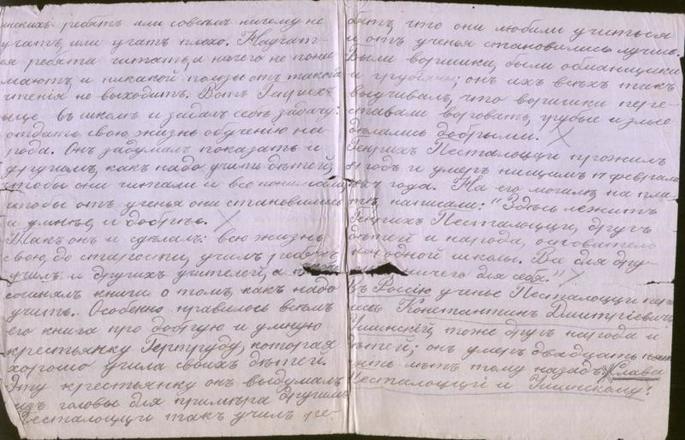 инскихъ ребятъ или совсѣмъ ничему не
учатъ, или учатъ плохо. Научат-
ся ребята читать, а ничего не пони
маютъ, и никакой пользы отъ такого
чтенія не выходитъ. Вотъ Генрихъ
еще въ школѣ и задалъ себѣ задачу:
отдать свою жизнь обученію на
рода. Онъ задумалъ показать и
другимъ, какъ надо учить дѣтей,
чтобы они читали и все понимали,
чтобы отъ ученья они становились
и умнѣе, и добрѣе.
Такъ онъ и сдѣлалъ: всю жизнь
свою, до старости, училъ
училъ и другихъ учителей, а
сочинялъ книги о томъ, какъ надо
учить. Особенно нравилось всѣмъ
его книга про добрую и умную
крестьянку Гертруду, которая
хорошо учила своихъ дѣтей.
Эту крестьянку онъ выдумалъ
изъ головы для примѣра другимъ.
Песталоцци такъ училъ ре-
бятъ, что они любили учиться
и отъ ученья становились лучше.
Были воришки, были обманщики
и грубіяны; онъ ихъ всѣхъ такъ
выучивалъ, что воришки пере-
ставали воровать, грубые и злые
дѣлались добрыми.
Генрихъ Песталоцци прожилъ
годъ и умеръ нищимъ 17 февраля
года. На его могилѣ, на пли
тѣ, написали: "Здѣсь лежитъ
Генрихъ Песталоцци, другъ
дѣтей и народа, основатель
народной школы. Все для дру-
ничего для себя."
Въ Россію ученье Песталоцци
Константинъ Дмитріевичъ
Ушинскій, тоже другъ народа и
дѣтей; онъ умеръ двадцать
лѣтъ тому назадъ. Слава
Песталоцци и Ушинскому!